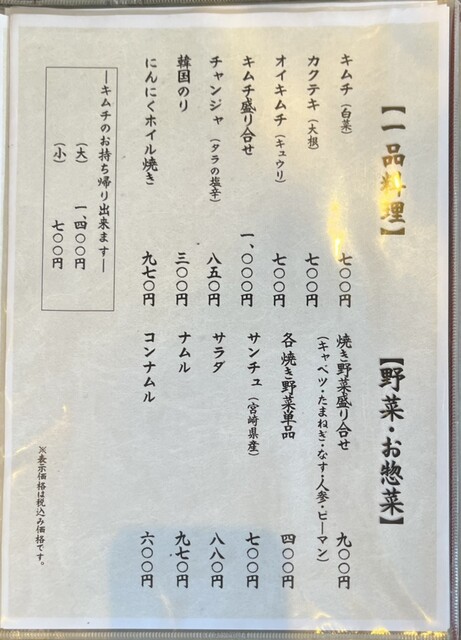 【一品料理】
キムチ（白菜） 七〇〇円
カクテキ（大根） 七〇〇円
オイキムチ（キュウリ） 七〇〇円
キムチ盛り合せ 一、〇〇〇円
チャンジャ（タラの塩辛） 八五〇円
韓国のり 三〇〇円
にんにくホイル焼き 九七〇円
―キムチのお持ち帰り出来ます―
（大） 一、四〇〇円
（小） 七〇〇円
【野菜・お惣菜】
焼き野菜盛り合せ 九〇〇円
（キャベツ・たまねぎ・なす・人参・ピーマン）
各焼き野菜単品 四〇〇円
サンチュ（宮崎県産） 七〇〇円
サラダ 八八〇円
ナムル 九七〇円
コンナムル 六〇〇円
※表示価格は税込み価格です。